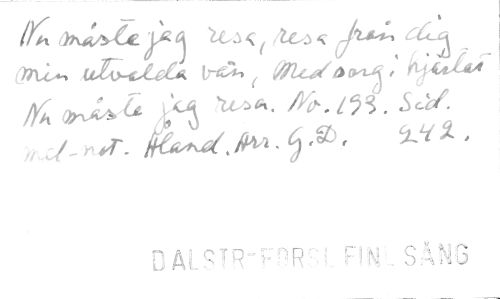 Nu måste jag resa, resa från dig
min utvalda vän, Med sorg i hjärtat
Nu måste jag resa. No. 193. Sid.
mel-not. Åland. Arr. G. D. 242.
DALSTR-FORSL FINL SÅNG